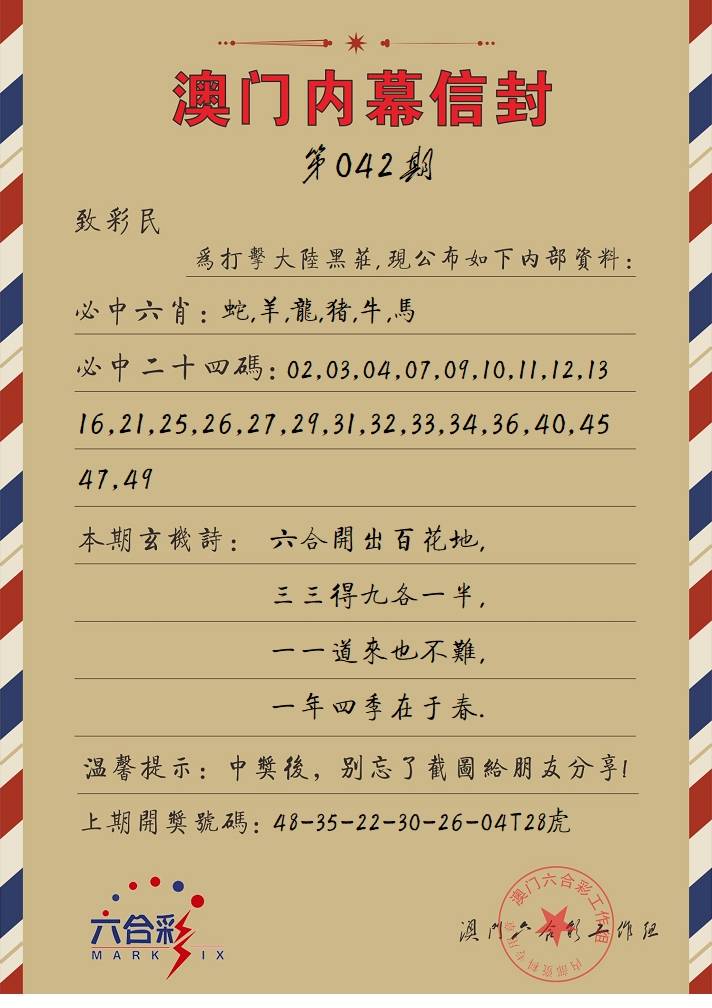 澳门内幕信封
第042期
致彩民
爲打擊大陸黑莊,現公布如下内部資料:
必中六肖:蛇,羊,龍,猪,牛,馬
必中二十四碼:02,03,04,07,09,10,11,12,13
16,21,25,26,27,29,31,32,33,34,36,40,45
47,49
本期玄機詩: 六合開出百花地,
三三得九各一半,
一一道來也不難,
一年四季在于春.
温馨提示:中獎後,别忘了截圖給朋友分享!
上期開獎號碼:48-35-22-30-26-04T28虎
六合彩
MARK SIX
澳门六合彩工作组
内部资料专用章
澳门六合彩工作组